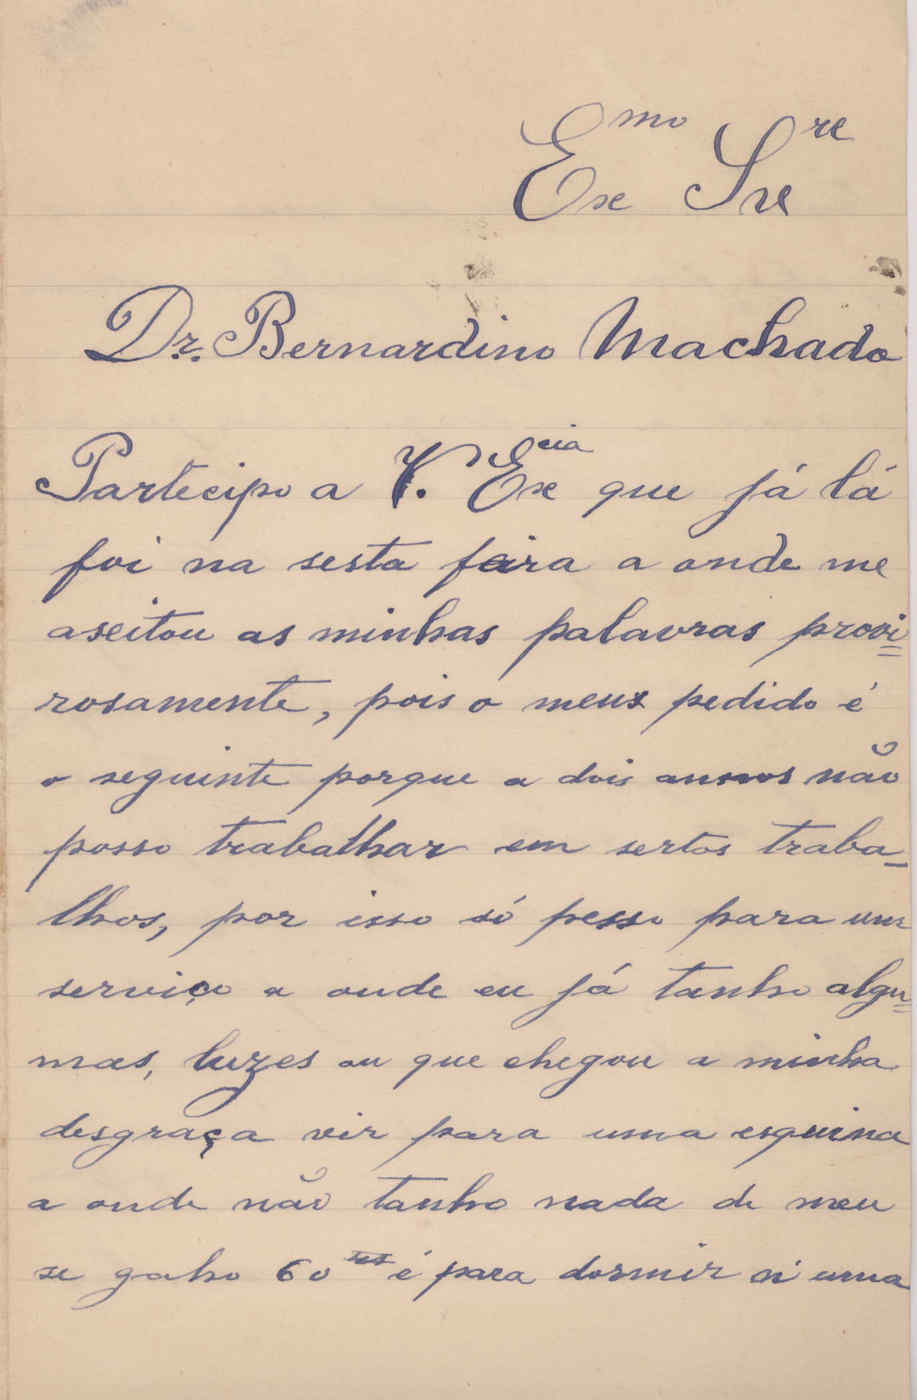 Exmo Snr
Dr. Bernardino Machado
Partecipo a V. Excia que já lá
foi na sesta feira a onde me
aseitou as minhas palavras provi=
rosamente, pois o meus pedido é
o seguinte porque a dois annos não
posso trabalhar em sertos traba-
lhos, por isso só pesso para um
serviço a onde eu já tanho algu=
mas, luzes ou que chegou a minha
desgraça vir para uma esquina
a onde não tanho nada de meu
se gaho 60 res é para dormir n'uma